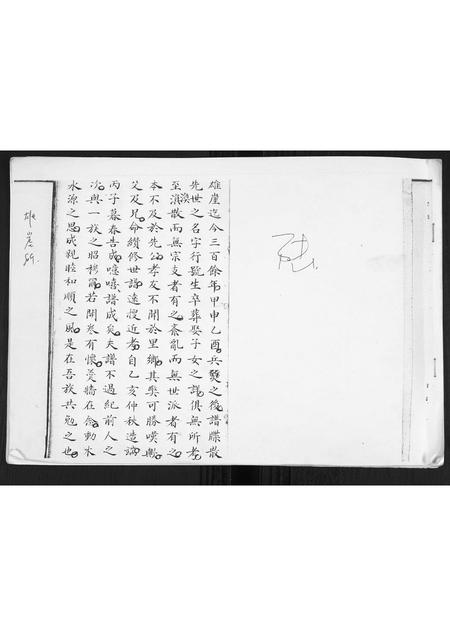 雄崖迄今三百餘年甲申乙酉兵燹之後譜牒散
先世之名字行號生卒葬娶子女之詳俱無所考
至渙散而無宗支者有之紊亂而無世派者有之
本不及於先公孝友不聞於里鄉其奚可勝嘆歟
父及兄命纘修世譜遠搜近考自乙亥仲秋造論
丙子暮春告成噫嘻譜成矣夫譜不過紀前人之
次與一族之昭穆爾若開卷有懷羹牆在念動木
水源之思成親睦和順之風是在吾族共勉之也
雄崖所